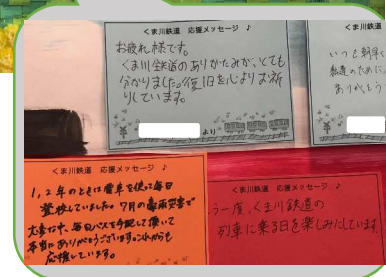 くま川鉄道 応援メッセージ ♪
お疲れ様です。
くま川鉄道のありがたみが、とても
分かりました。復旧を心よりお祈
りしています。
より
くま川鉄道
いつも朝早く
ありがとう
くま川鉄道 応援メッセージ ♪
1,2年のときは電車を使って毎日
登校していました。7月の豪雨災害で
大変な中、毎日バスを手配して頂いて
本当にありがとうございます。これからも
応援しています。
くま川鉄道 応援メッセージ ♪
う一度、くま川鉄道の
列車に乗る日を楽しみにしています